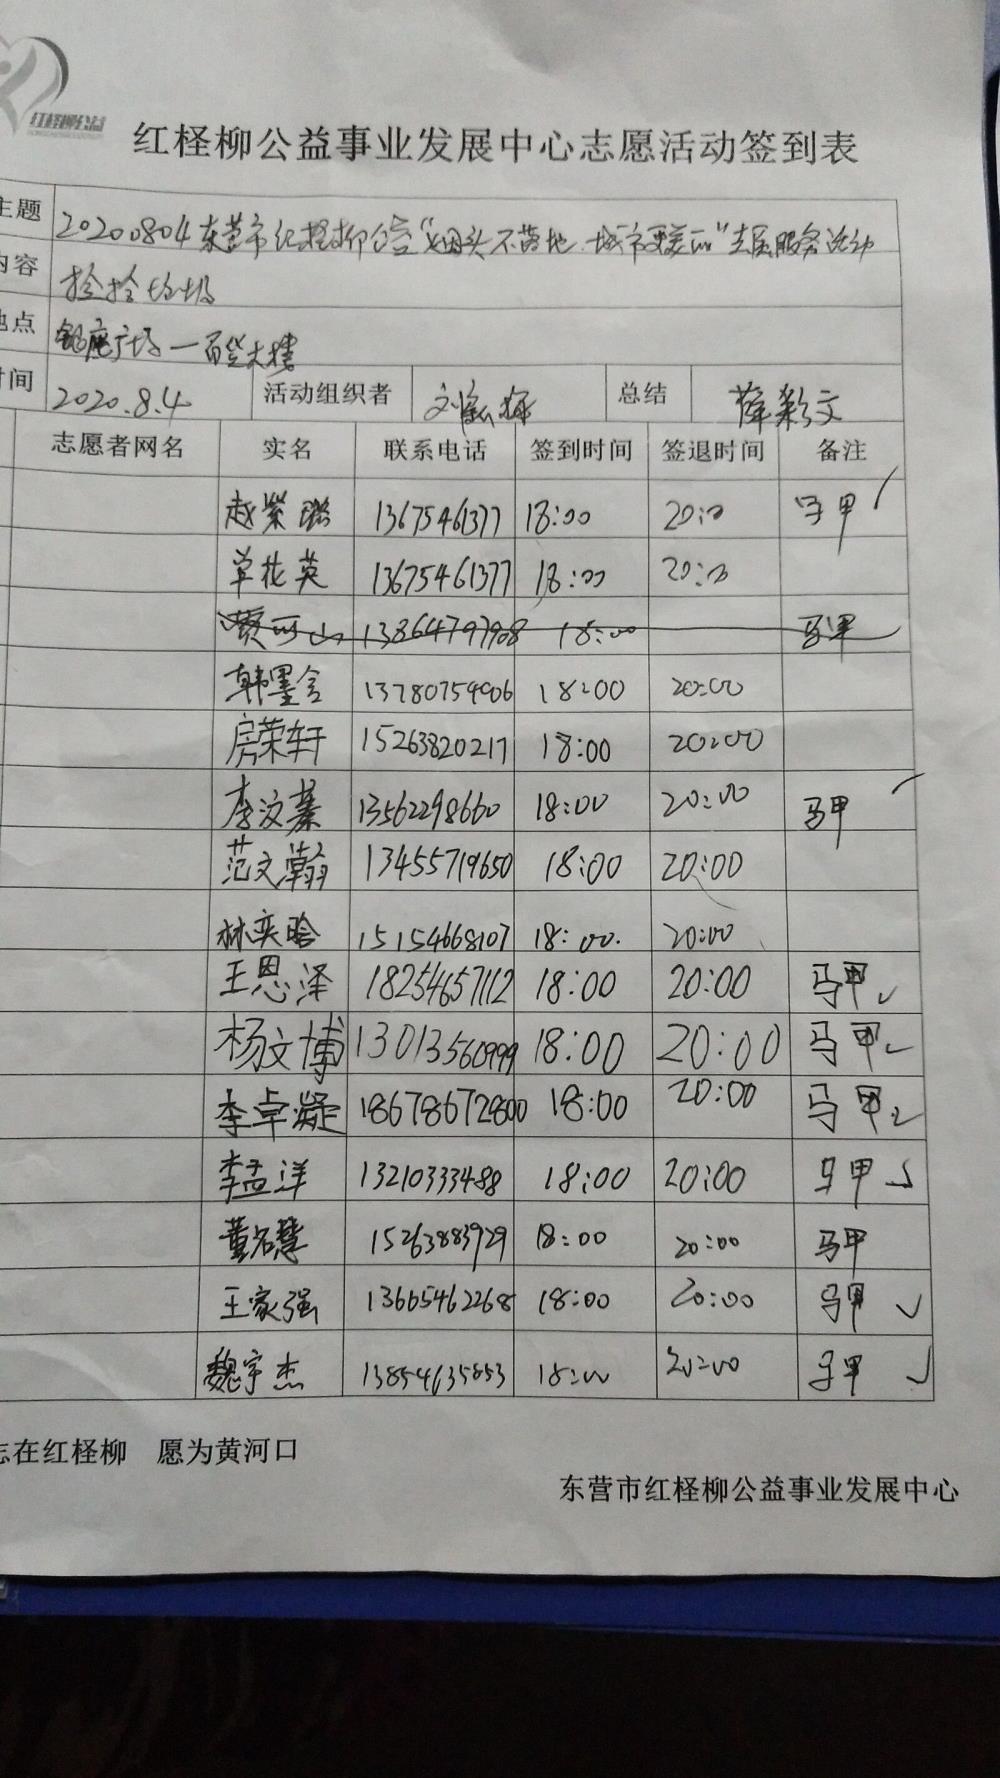 红柽柳公益
红柽柳公益事业发展中心志愿活动签到表
主题 20200804东营市红柽柳公益“烟头不落地 城市更美丽”志愿服务活动
内容 捡拾垃圾
地点 银座广场一百货大楼
时间 2020.8.4 活动组织者 刘 梅 总结 薛彩文
志愿者网名 实名 联系电话 签到时间 签退时间 备注
赵紫璐 13675461377 18:00 20:00 马甲 ✓
单花英 13675461377 18:00 20:00
贾 山 13864797908 18:00 马甲
韩墨含 13780754906 18:00 20:00
房荣轩 15263820217 18:00 20:00
李汶蓁 13562298660 18:00 20:00 马甲 ✓
范文瀚 13455719650 18:00 20:00
林奕晗 15154668107 18:00. 20:00
王恩泽 18254657112 18:00 20:00 马甲 ✓
杨文博 13013560999 18:00 20:00 马甲 ✓
李卓凝 18678672800 18:00 20:00 马甲 ✓
李孟洋 13210333488 18:00 20:00 马甲 ✓
董名慧 15263883929 18:00 20:00 马甲
王家强 13665462268 18:00 20:00 马甲 ✓
魏宇杰 13854635853 18:00 20:00 马甲 ✓
志在红柽柳 愿为黄河口
东营市红柽柳公益事业发展中心